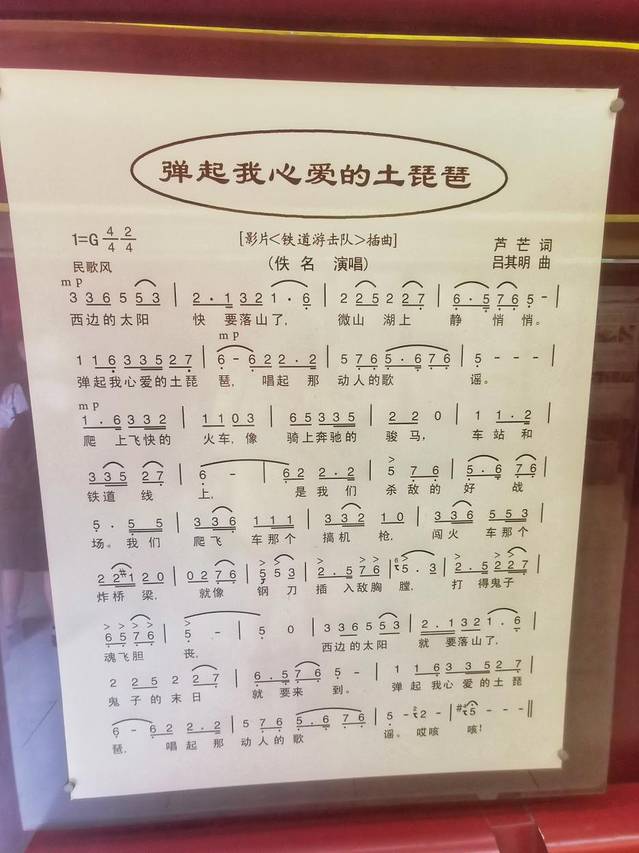 弹起我心爱的土琵琶
1=G 4/4 2/4
[影片<铁道游击队>插曲]
芦 芒 词
民歌风
(佚 名 演唱)
吕其明 曲
mp
3 3 6 5 5 3 | 2 · 1 3 2 1 · 6 | 2 2 5 2 2 7 | 6 · 5 7 6 5 - |
西边的太阳 快 要落山了, 微山 湖上 静 悄悄。
mp
1 1 6 3 3 5 2 7 | 6 - 6 2 2 · 2 | 5 7 6 5 · 6 7 6 | 5 - - - |
弹起我心爱的土琵 琶, 唱起 那 动人的歌 谣。
mp
1 · 6 3 3 2 | 1 1 0 3 | 6 5 3 3 5 | 2 2 0 | 1 1 · 2 |
爬 上飞快的 火车,像 骑上奔驰的 骏马, 车站和
3 3 5 2 7 | 6 - | 6 2 2 · 2 | 5 7 6 | 5 · 6 7 6 |
铁道 线 上, 是我 们 杀敌的 好 战
5 · 5 5 | 3 3 6 1 1 1 | 3 3 2 1 0 | 3 3 6 1 1 1 |
场。我们 爬飞 车那个 搞机 枪, 闯火 车那个
2 2 #1 2 0 | 0 2 7 6 | 5 5 3 | 2 · 5 7 6 | 5 · 3 | 2 · 5 5 |
炸桥 梁, 就像 钢 刀 插 入敌胸 膛, 打 得鬼子
6 5 7 6 | 5 - | 5 0 | 3 3 6 5 5 3 | 2 · 1 3 2 1 · 6 |
魂飞胆 丧, 西边的太阳 就 要落山了,
2 2 5 2 2 7 | 6 · 5 7 6 5 - | 1 1 6 3 3 5 2 7 |
鬼子的末日 就 要来 到。 弹起我心 爱的土琵
6 - 6 2 2 · 2 | 5 7 6 5 · 6 7 6 | 5 - 2 - | #5 - - ‖
琶, 唱起那 动人的歌 谣。哎咳 咳!